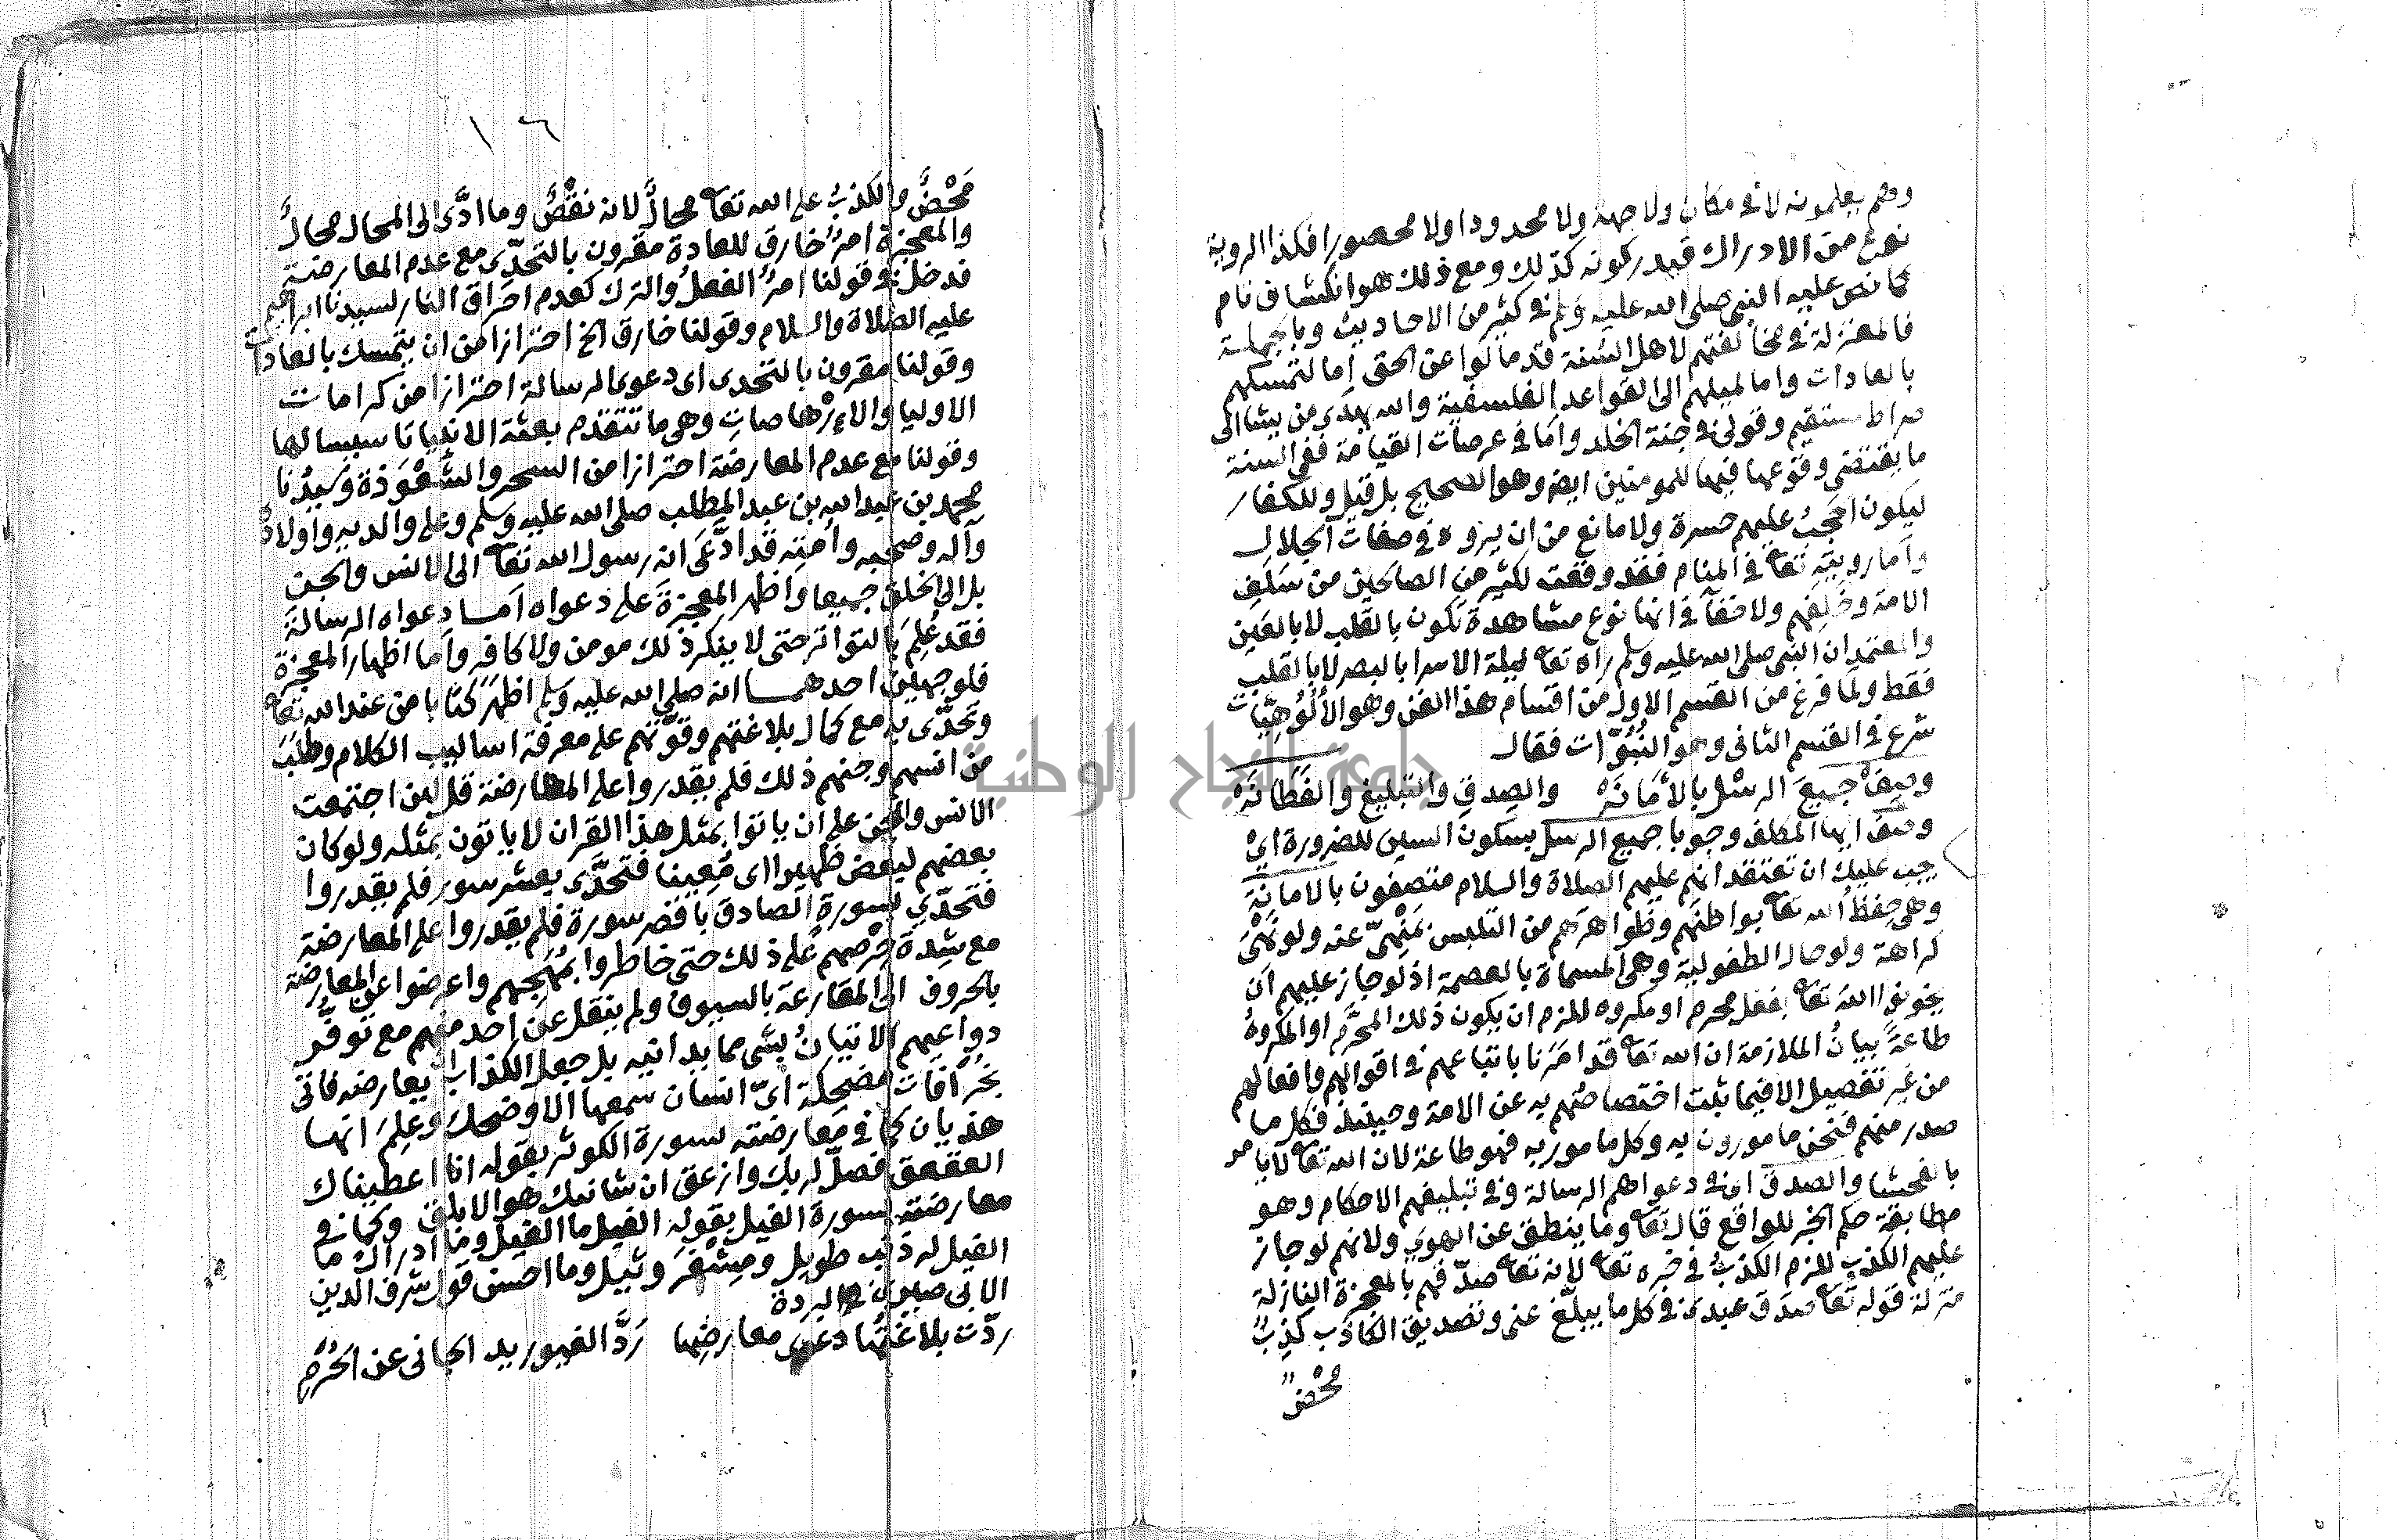 وهم يعلمونه لا في مكان ولا جهة ولا محدودا ولا محصورا فكذا الروية
نوع من الادراك فيدركونه كذلك ومع ذلك هو انكشاف تام
كما نص عليه النبي صلى الله عليه وسلم في كثير من الاحاديث وبالجملة
فالمعتزلة في مخالفتهم لاهل السنة قد مالوا عن الحق إما لتمسكهم
بالعادات واما لميلهم الى القواعد الفلسفية والله يهدى من يشا الى
صراط مستقيم وقولى في جنة الخلد وأما في عرصات القيامة ففى السنة
ما يقتضى وقوعها فيها للمومنين ايضا وهو الصحيح بل قيل وللكفار
ليكون الحجب عليهم حسرة ولا مانع من ان يروه في صفات الجلال
وأما رويته تعا في المنام فقد وقعت لكثير من الصالحين من سلف
الامة وخلفهم ولا خفآ في انها نوع مشاهدة تكون بالقلب لا بالعين
والمعتمد ان النبى صلى الله عليه وسلم راه تعا ليلة الاسرا بالبصر لا بالقلب
فقط ولما فرغ من القسم الاول من اقسام هذا الفن وهو الألُوهِيّات
شرع في القسم الثانى وهو النُبُوّات فقال
وصِفْ جميعَ الرسْل بالأَمَانَهْ والصِدقِ والتبليغ والفَطَانَهْ
وصف ايها المكلف وجوبا جميع الرسل بسكون السين للضرورة اىْ
يجب عليك ان تعتقد انهم عليهم الصلاة والسلام متصفون بالامانة
وهى حِفظُ الله تعا بواطنَهم وظواهرَهم من التلبس بمَنْهىّ عنه ولو نَهْىَ
كراهة ولو حال الطفولية وهى المسماة بالعصمة اذ لو جاز عليهم ان
يخونوا الله تعا بفعل محرم او مكروه للزم ان يكون ذلك المحرَّم او المكروهُ
طاعةً بيانُ الملازمة ان الله تعا قد امَرَنا باتباعهم في اقوالهم وافعالهم
من غير تفصيل الا فيما ثبت اختصاصُهم به عن الامة وحينئذ فكل ما
صدر منهم فنحن مامورون به وكل مامور به فهو طاعة لان الله تعا لا يامر
بالفحشا والصدق اى في دعواهم الرسالة وفي تبليغهم الاحكام وهو
مطابقة حكم الخبر للواقع قال تعا وما ينطق عن الهوى ولانهم لو جاز
عليهم الكذب للزم الكذبُ في خبره تعا لانه تعا صدّقهم بالمعجزة النازلة
منزلة قوله تعا صدق عبدى في كل ما يبلّغ عنى وتصديق الكاذب كذِبٌ
محْضٌ
١٦
مَحْضٌ والكذبُ على الله تعا محالٌ لانه نقْصٌ وما ادَّى الى المحال محالٌ
والمعجزة امرٌ خارق للعادة مقرون بالتحدّى مع عدم المعارضة
فدخل في قولنا امرٌ الفعلُ والترك كعدم احراق النار لسيدنا ابراهيم
عليه الصلاة والسلام وقولنا خارق الخ احترازا من ان يتمسك بالعادات
وقولنا مقرون بالتحدى اى دعوى الرسالة احترازا من كرامات
الاوليا والإرْهاصاتِ وهى ما تتقدم بعثة الانبيا تاسيسا لها
وقولنا مع عدم المعارضة احترازا من السحر والشَعْوَذة وسيدُنا
محمد بن عبد الله بن عبد المطلب صلى الله عليه وسلم وعلى والديه واولاده
وآله وصحبه وأمته قد ادَّعَى انه رسول الله تعا الى الانس والجن
بل الى الخلق جميعا واظهر المعجزةَ على دعواه أما دعواه الرسالةَ
فقد عُلِمَ بالتواتر حتى لا ينكر ذلك مومن ولا كافر وأما اظهار المعجزة
فلوجهين احدهما انه صلى الله عليه وسلم اظهر كتابا من عند الله تعا
وتحدّى به مع كمال بلاغتهم وقوّتهم على معرفة اساليب الكلام وطَلَبَ
من انسهم وجنهم ذلك فلم يقدروا على المعارضة قل لين اجتمعت
الانس والجن على ان ياتوا بمثل هذا القران لا ياتون بمثله ولو كان
بعضهم لبعض ظهيرا اى مُعِينا فتحدَّى بعشر سور فلم يقدروا
فتحدّى بسورة الصادق باقصر سورة فلم يقدروا على المعارضة
مع شِدة حِرْصهم على ذلك حتى خاطروا بمُهَجهم واعرضوا عن المعارضة
بالحروف الى المقارعة بالسيوف ولم ينقل عن احد منهم مع توفُّر
دواعيهم الاتيانُ بشى مما يدانيه بل جعل الكذاب يعارضه فاتى
بخُرافات مضحكة اىّ انسان سمعها الا وضحك وعلِمَ انها
هذيان كما في معارضته سورة الكوثر بقوله انا اعطيناك
العقعق فصلّ لربك وازعق ان شانيك هو الابلق وكما في
معارضته سورة الفيل بقوله الفيل ما الفيل وما ادراك ما
الفيل له ذنب طويل ومِشْفَر وثيل وما احسن قول شرف الدين
الابى صيرى في البردة
ردّت بلاغتُها دعوى معارضِها رَدَّ الغيور يد الجانى عن الحُرَمِ